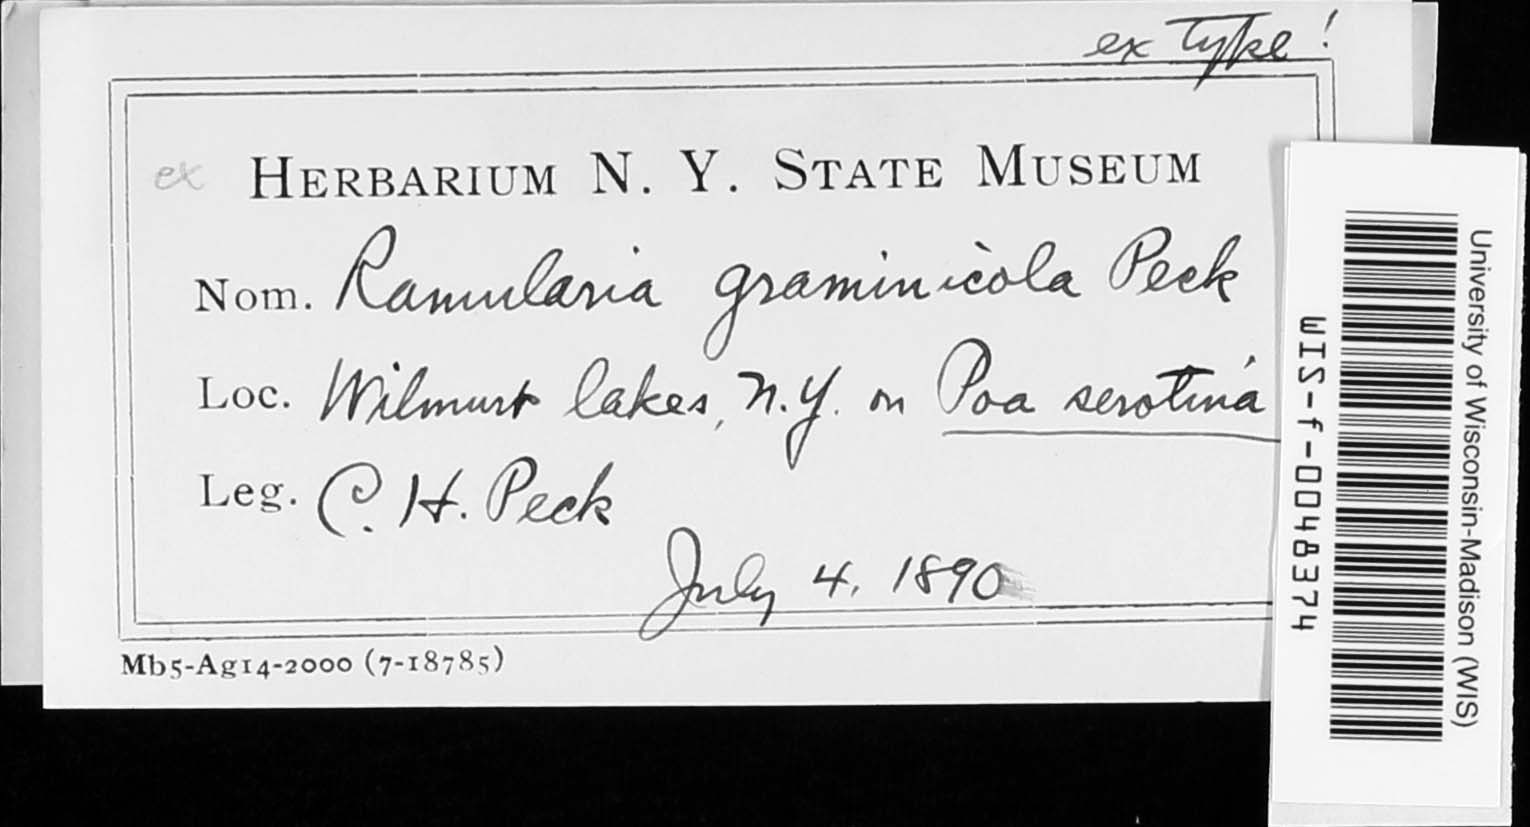 ex type!
ex HERBARIUM N. Y. STATE MUSEUM
Nom. Ramularia graminicola Peck
Loc. Wilmurt lakes, N.Y. on Poa serotina
Leg. C. H. Peck
July 4, 1890
Mb5-Ag14-2000 (7-18785)
University of Wisconsin-Madison (WIS)
WIS-f-0048374